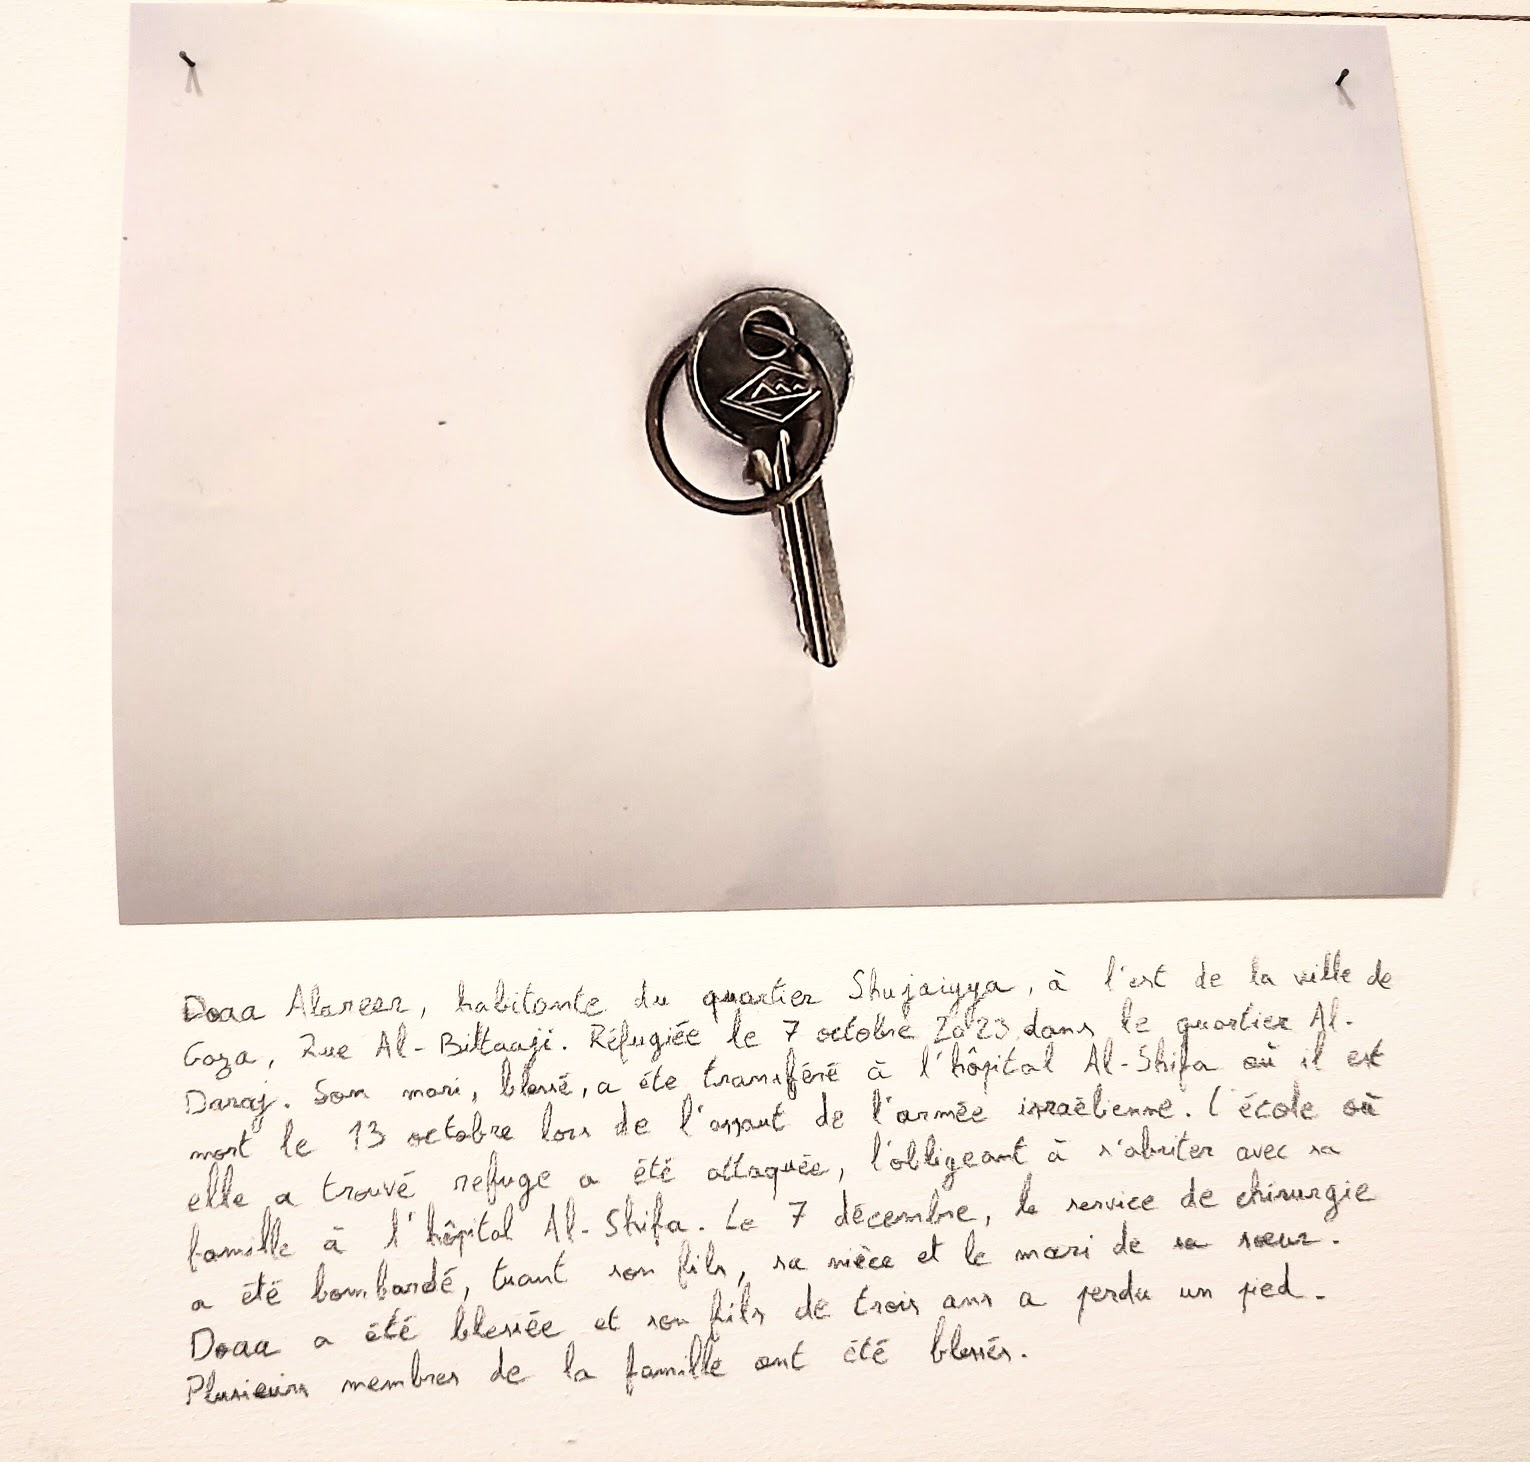 Doaa Alareer, habitante du quartier Shujaiyya, à l'est de la ville de
Gaza, Rue Al-Biltaaji. Réfugiée le 7 octobre 2023 dans le quartier Al-
Daraj. Son mari, blessé, a éte transféré à l'hôpital Al-Shifa où il est
mort le 13 octobre lors de l'assaut de l'armée israélienne. L'école où
elle a trouvé refuge a été attaquée, l'obligeant à s'abriter avec sa
famille à l'hôpital Al-Shifa. Le 7 décembre, le service de chirurgie
a été bombardé, tuant son fils, sa nièce et le mari de sa sœur.
Doaa a été blessée et son fils de trois ans a perdu un pied.
Plusieurs membres de la famille ont été blessés.